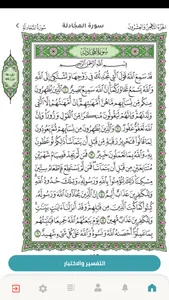 سورة المجادلة
الجزء الثامن والعشرون
سورة المجادلة
سُورَةُ المُجَادلةِ
بِسْمِ اللَّهِ الرَّحْمَٰنِ الرَّحِيمِ
قَدْ سَمِعَ اللَّهُ قَوْلَ الَّتِي تُجَادِلُكَ فِي زَوْجِهَا وَتَشْتَكِي إِلَى اللَّهِ
وَاللَّهُ يَسْمَعُ تَحَاوُرَكُمَا إِنَّ اللَّهَ سَمِيعٌ بَصِيرٌ ١ الَّذِينَ يُظَاهِرُونَ
مِنكُم مِّن نِّسَائِهِم مَّا هُنَّ أُمَّهَاتِهِمْ إِنْ أُمَّهَاتُهُمْ إِلَّا اللَّائِي
وَلَدْنَهُمْ وَإِنَّهُمْ لَيَقُولُونَ مُنكَرًا مِّنَ الْقَوْلِ وَزُورًا وَإِنَّ اللَّهَ
لَعَفُوٌّ غَفُورٌ ٢ وَالَّذِينَ يُظَاهِرُونَ مِن نِّسَائِهِمْ ثُمَّ يَعُودُونَ لِمَا قَالُوا
فَتَحْرِيرُ رَقَبَةٍ مِّن قَبْلِ أَن يَتَمَاسَّا ذَٰلِكُمْ تُوعَظُونَ بِهِ وَاللَّهُ بِمَا
تَعْمَلُونَ خَبِيرٌ ٣ فَمَن لَّمْ يَجِدْ فَصِيَامُ شَهْرَيْنِ مُتَتَابِعَيْنِ مِن قَبْلِ
أَن يَتَمَاسَّا فَمَن لَّمْ يَسْتَطِعْ فَإِطْعَامُ سِتِّينَ مِسْكِينًا ذَٰلِكَ لِتُؤْمِنُوا
بِاللَّهِ وَرَسُولِهِ وَتِلْكَ حُدُودُ اللَّهِ وَلِلْكَافِرِينَ عَذَابٌ أَلِيمٌ ٤
إِنَّ الَّذِينَ يُحَادُّونَ اللَّهَ وَرَسُولَهُ كُبِتُوا كَمَا كُبِتَ الَّذِينَ مِن
قَبْلِهِمْ وَقَدْ أَنزَلْنَا آيَاتٍ بَيِّنَاتٍ وَلِلْكَافِرِينَ عَذَابٌ
مُّهِينٌ ٥ يَوْمَ يَبْعَثُهُمُ اللَّهُ جَمِيعًا فَيُنَبِّئُهُم
بِمَا عَمِلُوا أَحْصَاهُ اللَّهُ وَنَسُوهُ وَاللَّهُ عَلَىٰ كُلِّ شَيْءٍ شَهِيدٌ ٦
التفسير والاختبار